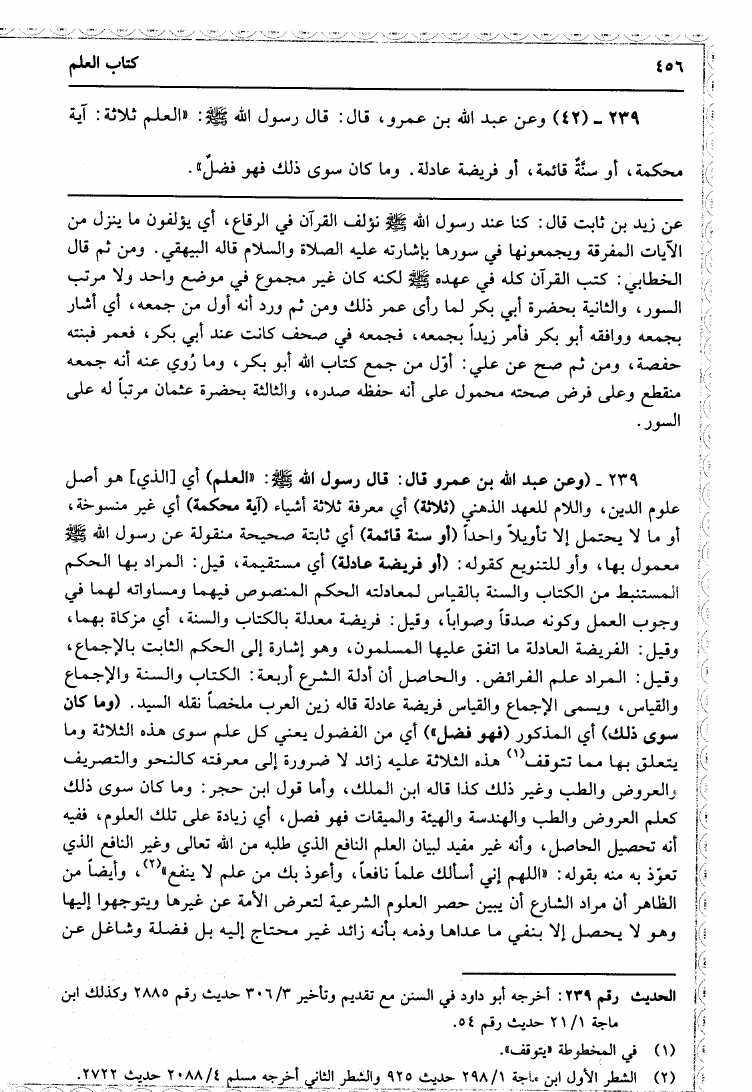 ٤٥٦
كتاب العلم
٢٣٩ ـ (٤٢) وعن عبد الله بن عمرو، قال: قال رسول الله ﷺ: «العلم ثلاثة: آية
محكمة، أو سنَّةٌ قائمة، أو فريضة عادلة. وما كان سوى ذلك فهو فضلٌ».
عن زيد بن ثابت قال: كنا عند رسول الله ﷺ نؤلف القرآن في الرقاع، أي يؤلفون ما ينزل من
الآيات المفرقة ويجمعونها في سورها بإشارته عليه الصلاة والسلام قاله البيهقي. ومن ثم قال
الخطابي: كتب القرآن كله في عهده ﷺ لكنه كان غير مجموع في موضع واحد ولا مرتب
السور، والثانية بحضرة أبي بكر لما رأى عمر ذلك ومن ثم ورد أنه أول من جمعه، أي أشار
بجمعه ووافقه أبو بكر فأمر زيداً بجمعه، فجمعه في صحف كانت عند أبي بكر، فعمر فبنته
حفصة، ومن ثم صح عن علي: أوّل من جمع كتاب الله أبو بكر، وما رُوي عنه أنه جمعه
منقطع وعلى فرض صحته محمول على أنه حفظه صدره، والثالثة بحضرة عثمان مرتباً له على
السور.
٢٣٩ ـ (وعن عبد الله بن عمرو قال: قال رسول الله ﷺ: «العلم) أي [الذي] هو أصل
علوم الدين، واللام للعهد الذهني (ثلاثة) أي معرفة ثلاثة أشياء (آية محكمة) أي غير منسوخة،
أو ما لا يحتمل إلا تأويلاً واحداً (أو سنة قائمة) أي ثابتة صحيحة منقولة عن رسول الله ﷺ
معمول بها، وأو للتنويع كقوله: (أو فريضة عادلة) أي مستقيمة، قيل: المراد بها الحكم
المستنبط من الكتاب والسنة بالقياس لمعادلته الحكم المنصوص فيهما ومساواته لهما في
وجوب العمل وكونه صدقاً وصواباً، وقيل: فريضة معدلة بالكتاب والسنة، أي مزكاة بهما،
وقيل: الفريضة العادلة ما اتفق عليها المسلمون، وهو إشارة إلى الحكم الثابت بالإجماع،
وقيل: المراد علم الفرائض. والحاصل أن أدلة الشرع أربعة: الكتاب والسنة والإجماع
والقياس، ويسمى الإجماع والقياس فريضة عادلة قاله زين العرب ملخصاً نقله السيد. (وما كان
سوى ذلك) أي المذكور (فهو فضل») أي من الفضول يعني كل علم سوى هذه الثلاثة وما
يتعلق بها مما تتوقف(١) هذه الثلاثة عليه زائد لا ضرورة إلى معرفته كالنحو والتصريف
والعروض والطب وغير ذلك كذا قاله ابن الملك، وأما قول ابن حجر: وما كان سوى ذلك
كعلم العروض والطب والهندسة والهيئة والميقات فهو فصل، أي زيادة على تلك العلوم، ففيه
أنه تحصيل الحاصل، وأنه غير مفيد لبيان العلم النافع الذي طلبه من الله تعالى وغير النافع الذي
تعوّذ به منه بقوله: «اللهم إني أسألك علماً نافعاً، وأعوذ بك من علم لا ينفع»(٢)، وأيضاً من
الظاهر أن مراد الشارع أن يبين حصر العلوم الشرعية لتعرض الأمة عن غيرها ويتوجهوا إليها
وهو لا يحصل إلا بنفي ما عداها وذمه بأنه زائد غير محتاج إليه بل فضلة وشاغل عن
الحديث رقم ٢٣٩: أخرجه أبو داود في السنن مع تقديم وتأخير ٣٠٦/٣ حديث رقم ٢٨٨٥ وكذلك ابن
ماجة ٢١/١ حديث رقم ٥٤.
(١) في المخطوطة «يتوقف».
(٢) الشطر الأول ابن ماجة ٢٩٨/١ حديث ٩٢٥ والشطر الثاني أخرجه مسلم ٢٠٨٨/٤ حديث ٢٧٢٢.